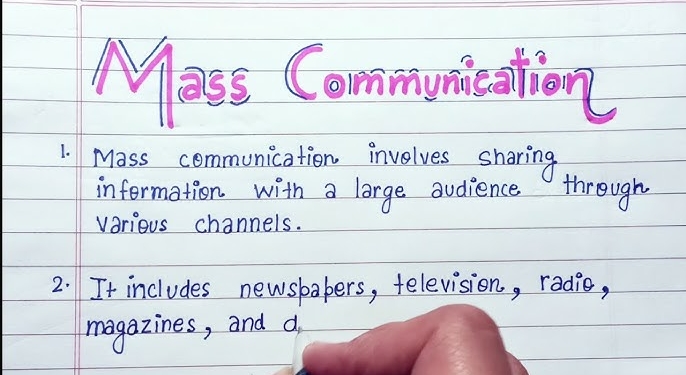 Mass Communication
1. Mass communication involves sharing
information with a large audience through
various channels.
2. It includes newspapers, television, radio,
magazines, and d